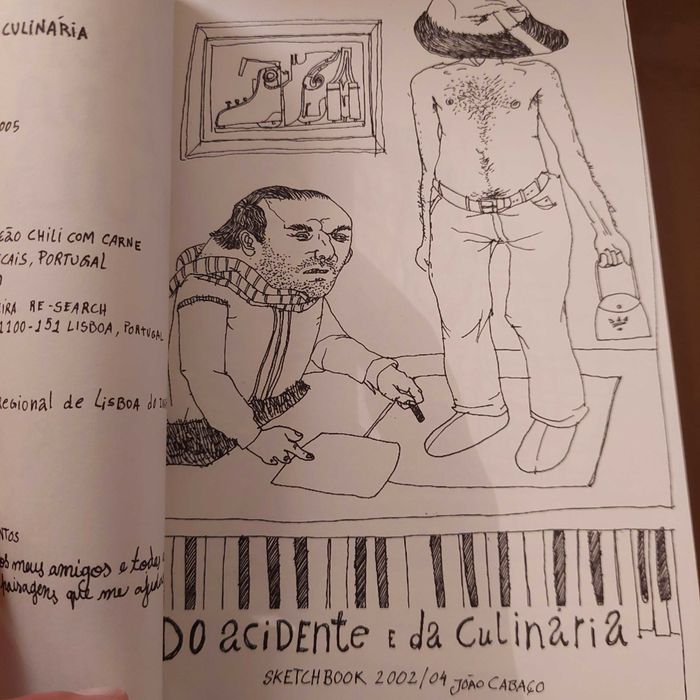 CULINÁRIA
005
CHILI COM CARNE
CAIS, PORTUGAL
RE-SEARCH
1100-151 LISBOA, PORTUGAL
REGIONAL de LISBOA do
NTOS
os meus amigos e todas
paisagens que me
DO aciDENte E da CuliNária
SKETCHBOOK 2002/04 JOÃO CABAÇO